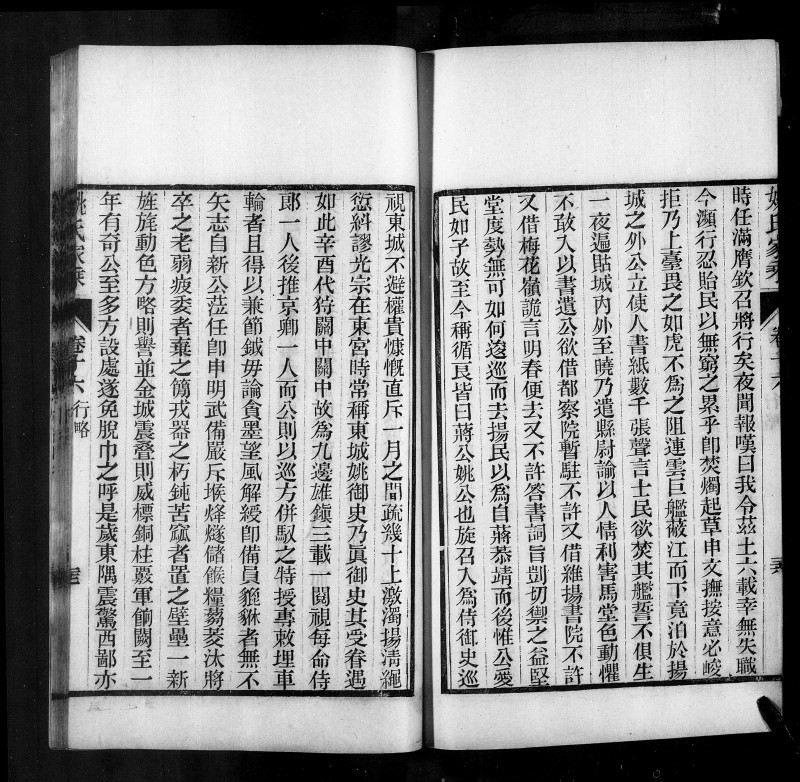 姚氏家乘
卷十六
時任滿膺欽召將行矣夜聞報嘆曰我令茲土六載幸無失職
今瀕行忍貽民以無窮之累乎卽焚燭起草申文撫按意必峻
拒乃上臺畏之如虎不爲之阻連雲巨艦蔽江而下竟泊於揚
城之外公立使人書紙數千張聲言士民欲焚其艦誓不俱生
一夜遍貼城內外至曉乃遣縣尉諭以人情利害馬堂色動懼
不敢入以書遣公欲借都察院暫駐不許又借維揚書院不許
又借梅花嶺詭言明春便去又不許答書詞旨剴切禦之益堅
堂度勢無可如何逡巡而去揚民以爲自蔣恭靖而後惟公愛
民如子故至今稱循良皆曰蔣公姚公也旋召入爲侍御史巡
視東城不避權貴慷慨直斥一月之間疏幾十上激濁揚清繩
愆糾謬光宗在東宮時常稱東城姚御史乃眞御史其受眷遇
如此辛酉代狩關中關中故爲九邊雄鎮三載一閱視每命侍
郎一人後推京卿一人而公則以巡方併馭之特授專敕埋車
輪者且得以兼節鉞毋論貪墨望風解綬卽備員貔貅者無不
矢志自新公蒞任卽申明武備嚴斥堠烽燧儲餱糧蒭茭汰將
卒之老弱疲委者棄之簡戎器之朽鈍苦窳者置之壁壘一新
旌旄動色方略則譽並金城震疊則威標銅柱覈軍餉闕至一
年有奇公至多方設處遂免脫巾之呼是歲東隅震驚西鄙亦
姚氏家乘
卷十六
行略